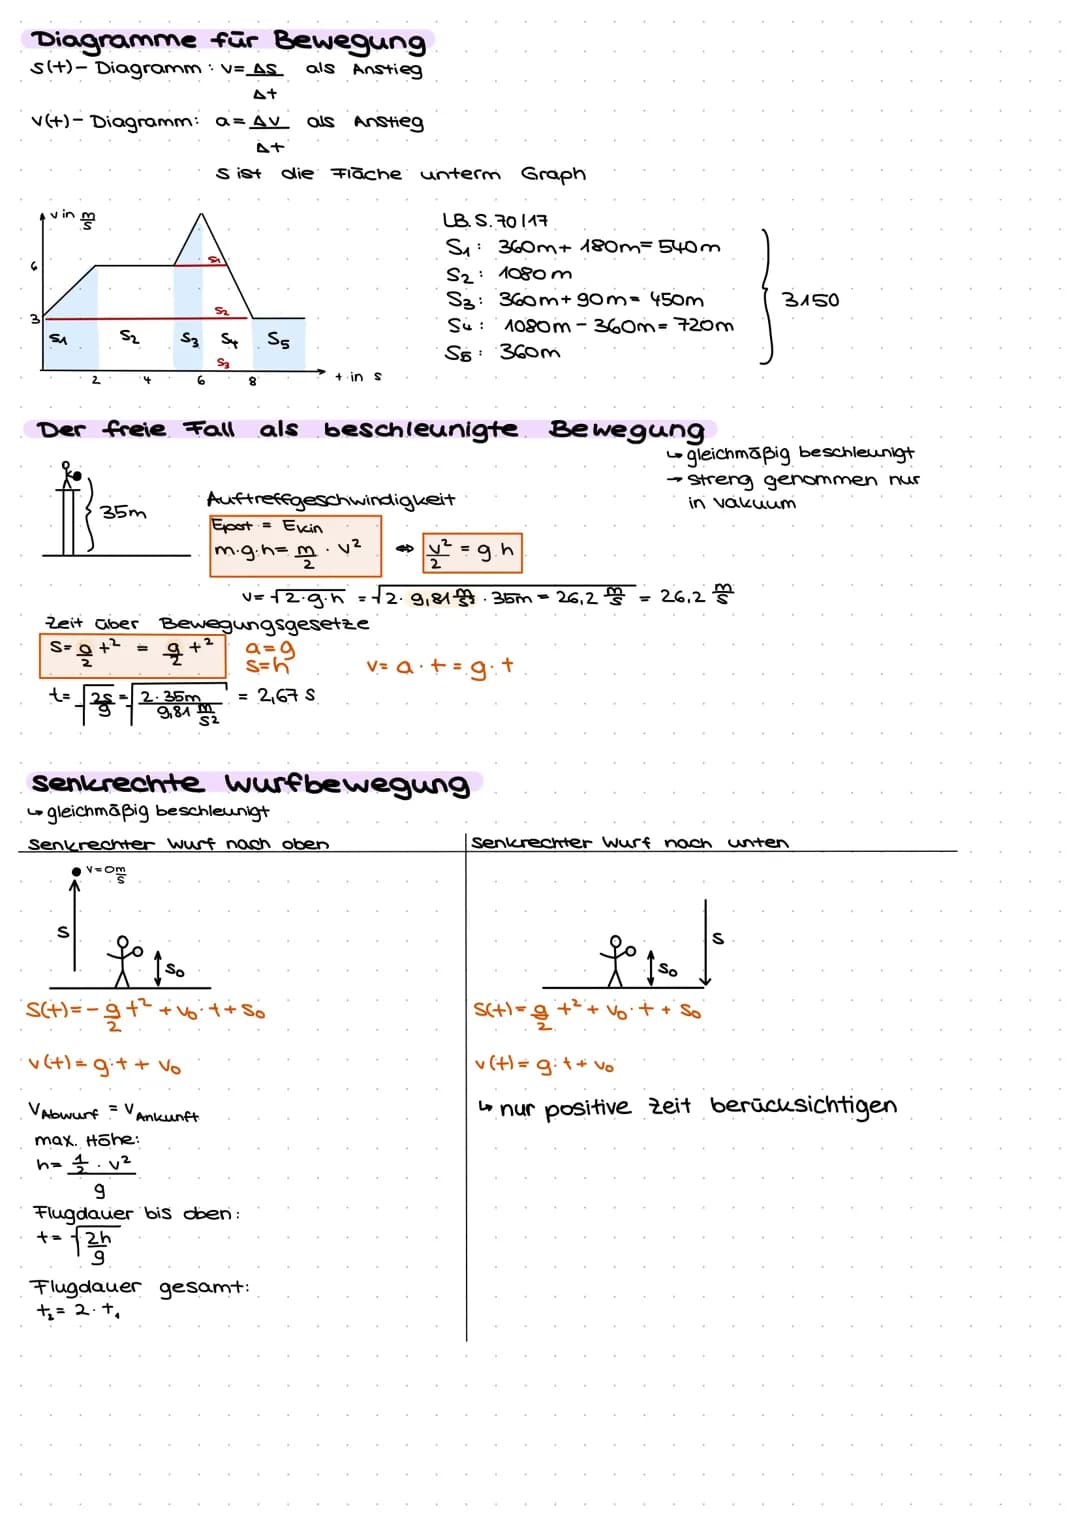 Diagramme für Bewegung
s(t)- Diagramm: v= Δs/Δt als Anstieg
v(t)- Diagramm: a= Δv/Δt als Anstieg
s ist die Fläche unterm Graph
v in m/s
6
3
S1 S2 S3 S4 S5
S1
S2
S3
2 4 6 8
t in s
LB. S. 70/17
S1: 360m+ 180m= 540m
S2: 1080m
S3: 360m+90m= 450m
S4: 1080m-360m= 720m
S5: 360m
3150
Der freie Fall als beschleunigte Bewegung
↳ gleichmäßig beschleunigt
→ streng genommen nur
in vakuum
35m
Auftreffgeschwindigkeit
Epot = Ekin
m·g·h= m/2 · v² ⇔ v²/2 = g·h
v= √2·g·h = √2·9,81 m/s² · 35m = 26,2 m/s = 26,2 m/s
Zeit über Bewegungsgesetze
s= a/2 t² = g/2 t²
a=g
s=h
v= a·t = g·t
t= √2s/g = √2·35m/9,81 m/s² = 2,67 s
Senkrechte Wurfbewegung
↳ gleichmäßig beschleunigt
Senkrechter Wurf nach oben
v=0 m/s
s
s₀
s(t)= - g/2 t² + v₀·t + s₀
v(t)= g·t + v₀
vAbwurf = vAnkunft
max. Höhe:
h= ½·v²/g
Flugdauer bis oben:
t= √2h/g
Flugdauer gesamt:
t₂= 2·t₁
Senkrechter Wurf nach unten
s
s₀
s(t)= g/2 t² + v₀·t + s₀
v(t)= g·t + v₀
↳ nur positive Zeit berücksichtigen